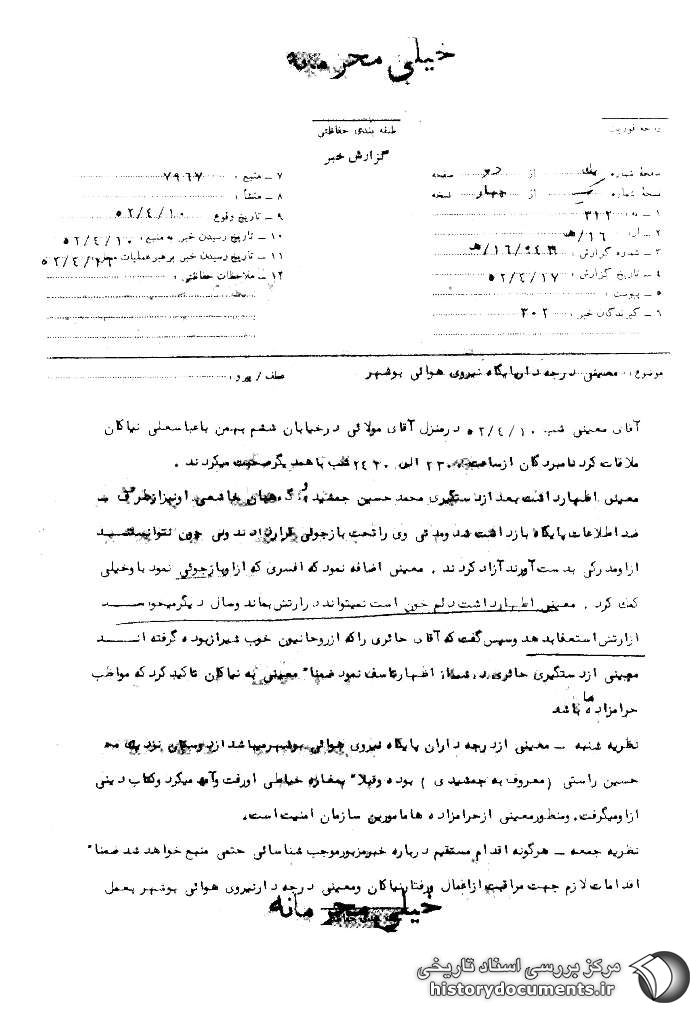 خیلی محرمانه
طبقه بندی حفاظتی
گزارش خبر
صفحهٔ شماره یک از دو صفحه
نسخهٔ شماره از چهار نسخه
۱ ـ به : ۳۱۲
۲ ـ از : ۱۶/هـ
۳ ـ شماره گزارش : /۱۶/هـ
۴ ـ تاریخ گزارش : ۵۲/۴/۱۷
۵ ـ پیوست :
۶ ـ گیرندگان خبر : ۳۰۲
۷ ـ منبع : ۷۹۶۷
۸ ـ منشأ :
۹ ـ تاریخ وقوع ۵۲/۴/۱۰
۱۰ ـ تاریخ رسیدن خبر به منبع : ۵۲/۴/۱۰
۱۱ ـ تاریخ رسیدن خبر برهبر عملیات ۵۲/۴/۱۶
۱۲ ـ ملاحظات حفاظتی :
موضوع : معینی درجه دارپایگاه نیروی هوائی بوشهر
عطف / پیرو :
آقای معینی شب ۵۲/۴/۱۰ درمنزل آقای مولائی درخیابان ششم بهمن باعباسعلی نیاکان
ملاقات کرد نامبردگان ازساعت ۲۳۰۰ الی ۲۴۳۰ شب باهمدیگرصحبت میکردند .
معینی اظهارداشت بعد ازدستگیری محمد حسین جمشیدی و هاشمی اونیزازطرف
ضد اطلاعات پایگاه بازداشت شد ومدتی وی راتحت بازجوئی قراردادند ولی چون نتوانستند
ازاومدرکی بدست آورند آزاد کردند . معینی اضافه نمود که افسری که ازاوبازجوئی نمود باوخیلی
کمک کرد . معینی اظهارداشت دلم خون است نمیتواند درارتش بماند وسال دیگرمیخواهد
ازارتش استعفا بدهد وسپس گفت که آقای حائری راکه ازروحانیون خوب شیرازبوده گرفته اند
معینی ازدستگیری حائری درشیراز اظهارتاسف نمود ضمنا" معینی به نیاکان تاکید کرد که مواظب
حرامزاده ها باشد
نظریه شنبه ـ معینی ازدرجه داران پایگاه نیروی هوائی بوشهرمیباشد ازدوستان نزدیک محمد
حسین راستی (معروف به جمشیدی ) بوده وقبلا" بمغازه خیاطی اورفت وآمد میکرد وکتاب دینی
ازاومیگرفت. ومنظورمعینی ازحرامزاده هامامورین سازمان امنیت است.
نظریه جمعه ـ هرگونه اقدام مستقیم درباره خبرمزبورموجب شناسائی حتمی منبع خواهد شد ضمنا"
اقدامات لازم جهت مراقبت ازاعمال ورفتارنیاکان ومعینی درجه دارنیروی هوائی بوشهر بعمل
خیلی محرمانه
مرکز بررسی اسناد تاریخی
historydocuments.ir